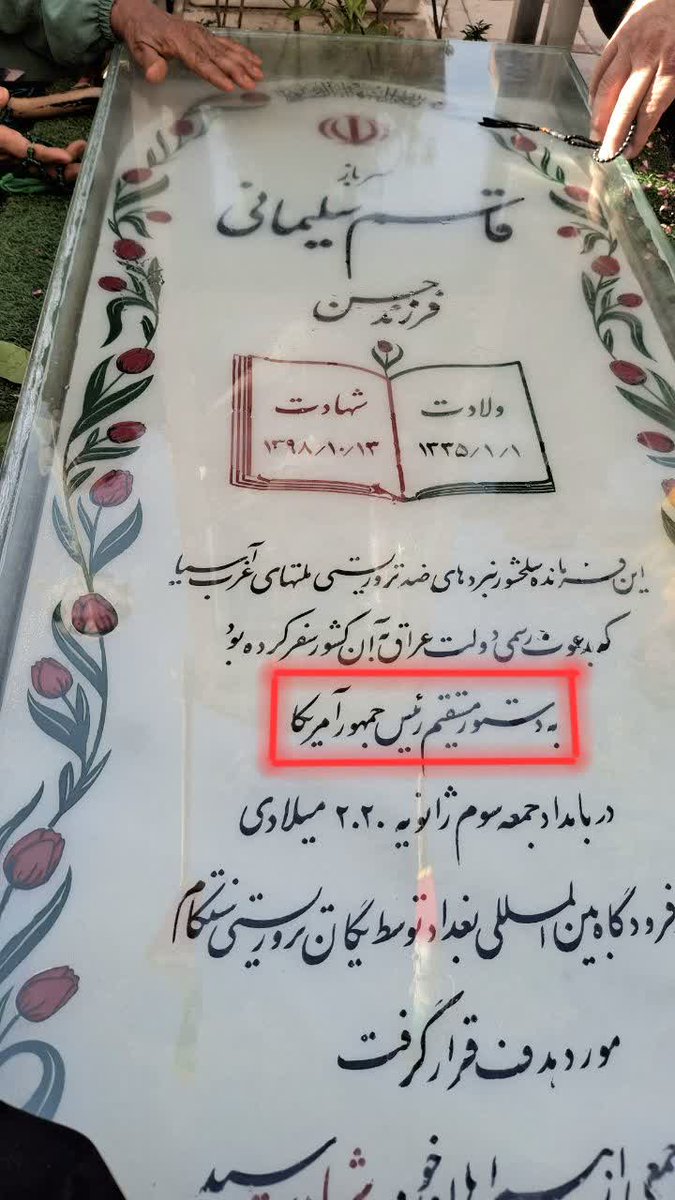 سرباز
قاسم سلیمانی
فرزند حسن
ولادت
۱۳۳۵/۱/۱
شهادت
۱۳۹۸/۱۰/۱۳
این فرمانده سلحشور نبردهای ضد تروریستی ملتهای غرب آسیا
که بدعوت رسمی دولت عراق به آن کشور سفر کرده بود
به دستور مستقیم رئیس جمهور آمریکا
در بامداد جمعه سوم ژانویه ۲۰۲۰ میلادی
فرودگاه بین المللی بغداد توسط یگان تروریستی سنتکام
مورد هدف قرار گرفت
جمعی از همراهان خود شهادت رسید